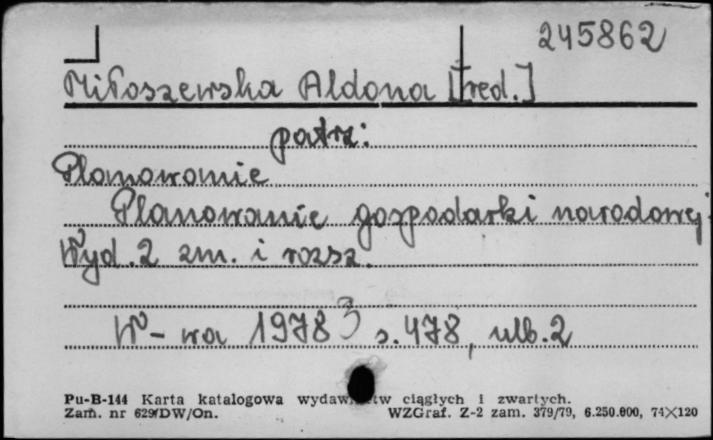 245862
Miłoszewska Aldona [red.]
patrz:
Planowanie
Planowanie gospodarki narodowej.
Wyd. 2 zm. i rozsz.
W-wa 1978 3 s. 478, nlb. 2
Pu-B-144 Karta katalogowa wydawnictw ciągłych i zwartych.
Zam. nr 629/DW/On. WZGraf. Z-2 zam. 379/79, 6.250.000, 74×120